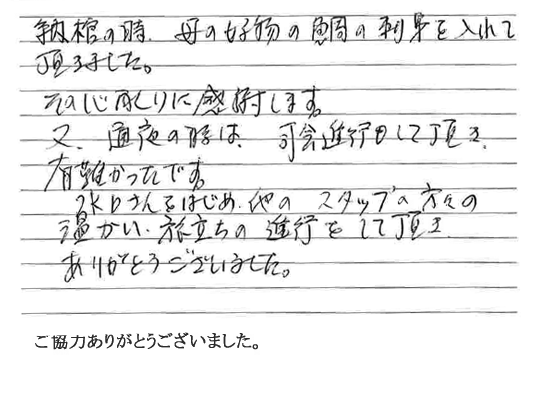 納棺の時、母の好物の鯛の刺身を入れて
頂きました。
その心配りに感謝します。
又、通夜の時は、司会進行をして頂き、
有難かったです。
さんをはじめ、他の スタッフの方々の
温かい、旅立ちの進行をして頂き
ありがとうございました。
ご協力ありがとうございました。